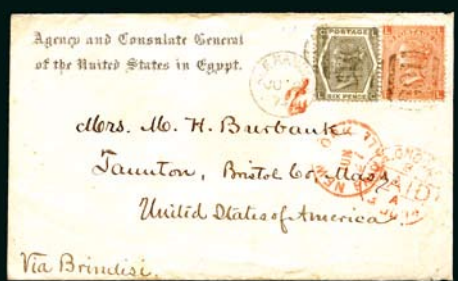 Agency and Consulate General
of the United States in Egypt.
POSTAGE
SIX PENCE
Mrs. M. H. Burbank
Taunton, Bristol Co. Mass
United States of America
NEW YORK
LONDON
PAID
Via Brindisi.